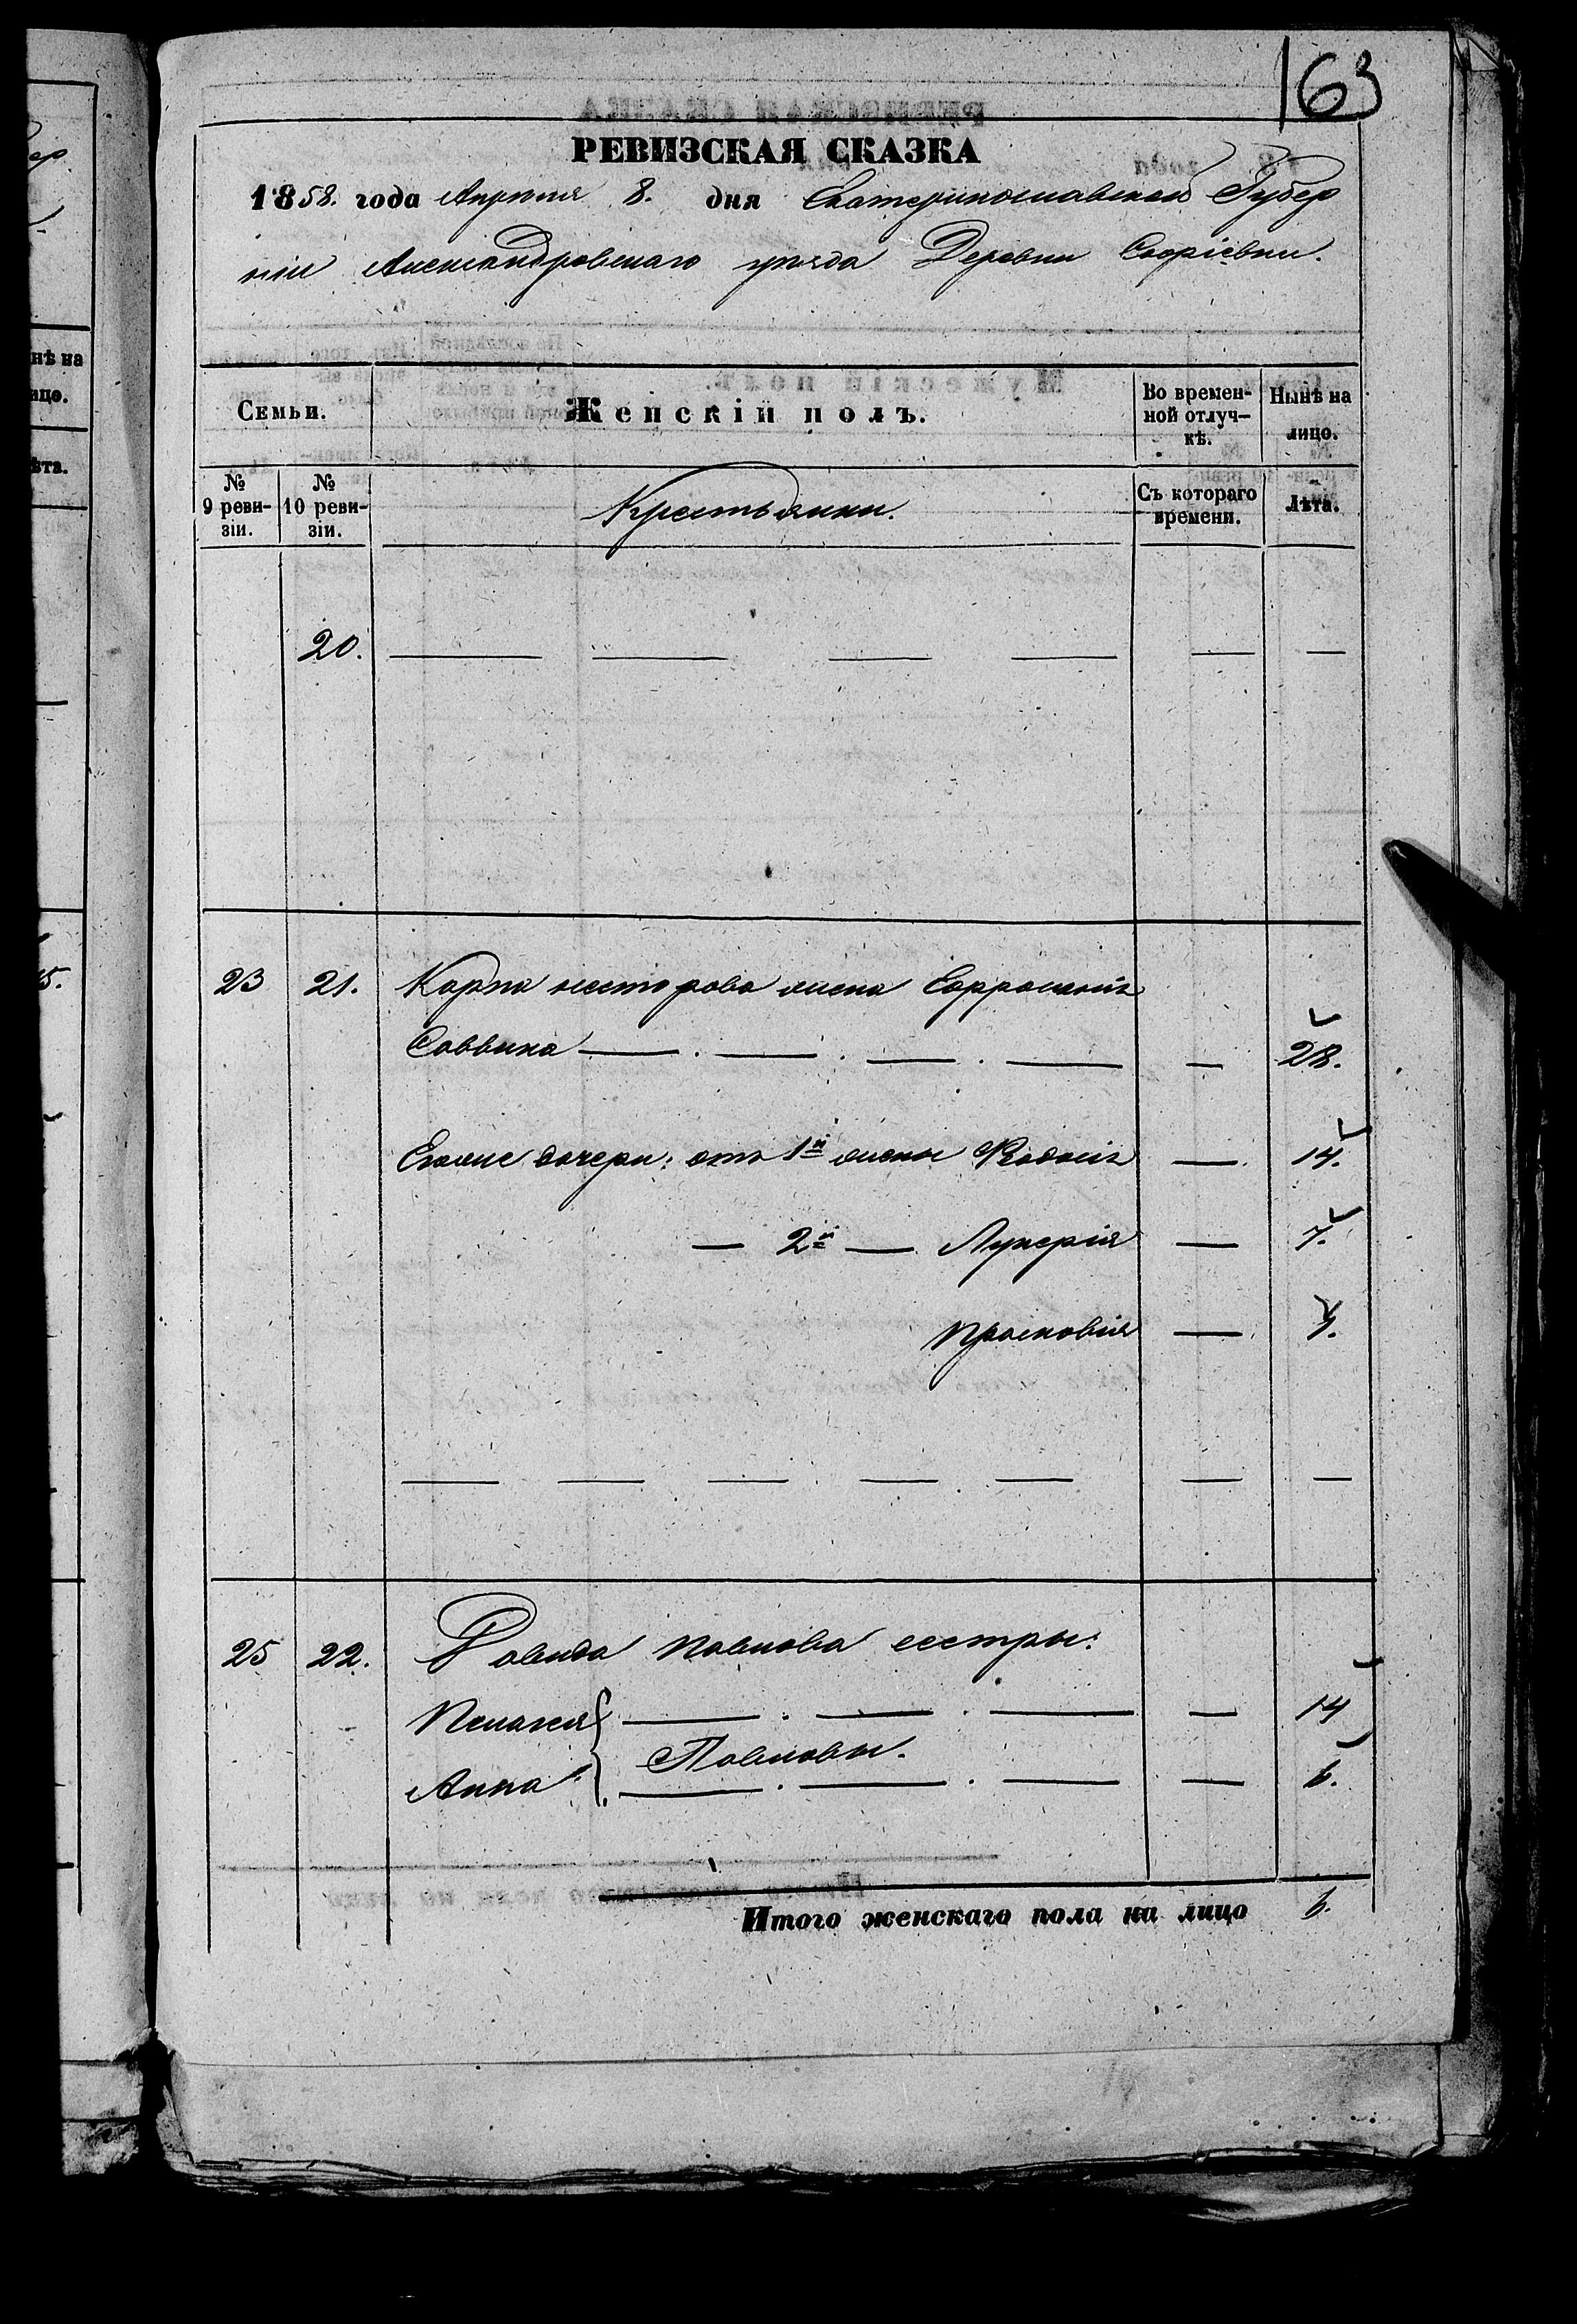 163
РЕВИЗСКАЯ СКАЗКА
1858. года Апрѣля 8. дня Екатеринославской Губер
ніи Александровскаго уѣзда Деревни Софіевки.
Семьи.
Женскій полъ.
Во времен-
ной отлуч-
кѣ.
Нынѣ на
лицо.
№
9 реви-
зіи.
№
10 реви-
зіи.
Крестьянки.
Съ котораго
времени.
Лѣта.
20. — — — — — —
23 21. Карпа нестерова жена Ефросинія
Саввина — . — . — . — — 28.
Еговые дочери: отъ 1й жены Федосія — 14.
— 2й — Лукерія — 7.
Прасковія —
— — — — — — —
25 22. Давида Павлова сестры:
Пелагея — . — . — — 14
Павловы.
Анна — . — . — — 6.
Итого женскаго пола на лицо 6.
нѣ на
ицо.
ѣта.